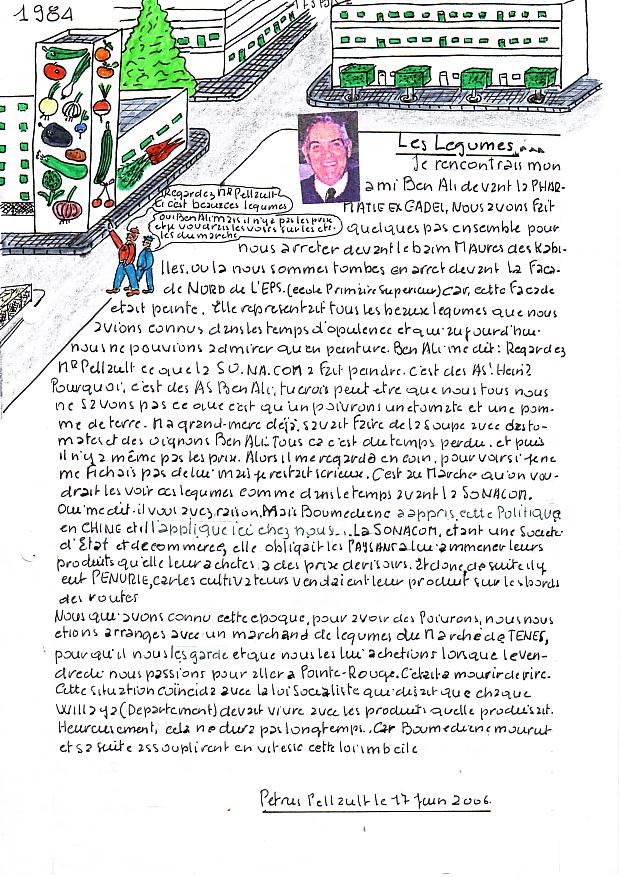 1984
Les Legumes....
Je rencontrais mon
ami Ben Ali devant la PHAR-
MATIE EX GADEL, Nous avons fait
Regardez Mr Pellault
Ci c'est beau ces legumes
Oui Ben Ali mais il n'y a pas les prix
et je voudrais les voirs sur les eta-
les du marche
quelques pas ensemble pour
nous arreter devant le baim MAURES des Kabi-
lles, ou la nous sommes tombes en arret devant la Faca-
de NORD de l'EPS. (ecole Primaire Superieur) Car, cette Facade
etait peinte. Elle representait tous les beaux legumes que nous
avions connus dans les temps d'opulence et qu'aujourd'hui
nous ne pouvions admirer qu'en peinture. Ben Ali me dit: Regardez
Mr Pellault ce que la SO.NA.COM a fait peindre. C'est des AS! Hein?
Pourquoi, c'est des AS Ben Ali, tu crois peut etre que nous tous nous
ne savons pas ce que c'est qu'un poivrons une tomate et une pom-
me de terre. Ma grand-mere déjà, savait faire de la soupe avec des to-
mates et des oignons Ben Ali. Tous ca c'est du temps perdu. et puis
il n'y a même pas les prix. Alors il me regarda en coin, pour voir si je ne
me fichais pas de lui mais je restait serieux. C'est au Marche qu'on vou-
drait les voir ces legumes comme dans le temps avant la SONACOM.
Oui me dit-il vous avez raison. Mais Boumediene a appris cette Politique
en CHINE et il l'applique ici chez nous... La SONACOM, etant une Societe
d'Etat et de commerce, elle obligait les PAYSANS a lui ammener leurs
produits qu'elle leur achetes a des prix derisoirs. Et donc de suite il y
eut PENURIE, car les cultivateurs vendaient leur produit sur les bords
des routes
Nous qui avons connu cette epoque, pour avoir des Poivrons, nous nous
etions arranges avec un marchand de legumes du Marché de TENES,
pour qu'il nous les garde et que nous les lui achetions lorsque le ven-
dredi nous passions pour aller a Pointe-Rouge. C'etait a mourir de rire.
Cette situation coïncida avec la loi Socialiste qui disait que chaque
Willaya (Departement) devait vivre avec les produits quelle produisait.
Heureusement, cela ne dura pas longtemps.. Car Boumediene mourut
et sa suite assouplirent en vitesse cette loi imbecile
Petrus Pellault le 17 Juin 2006.